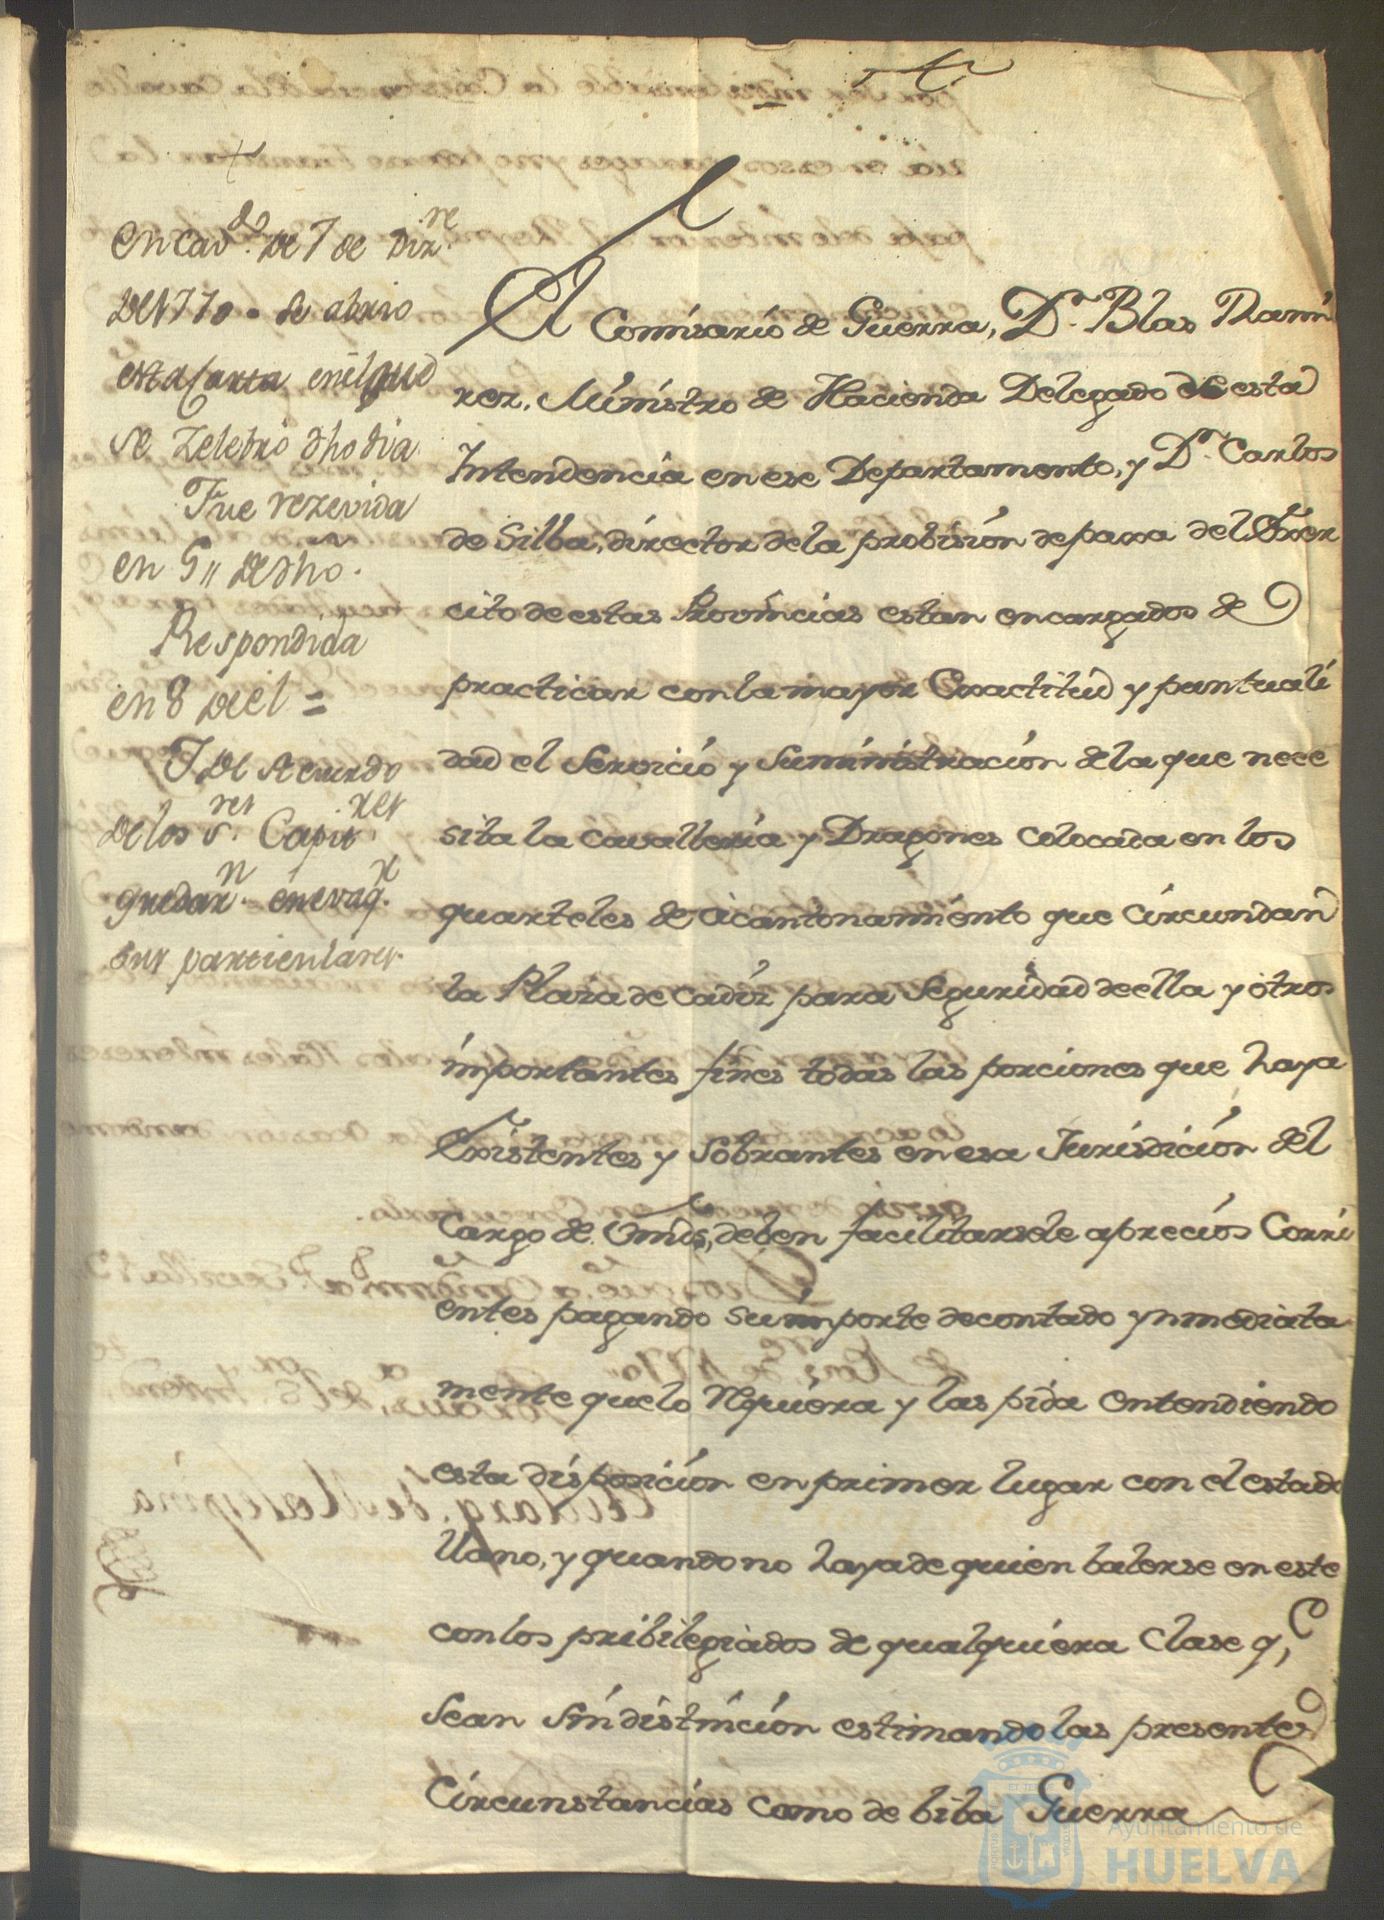 en cav.do de 7 de Diz.re
de 1770. se abrio
esta Carta en el que
se zelebrò dho dia.
Fue rezevida
en 5,, de dho.
Respondida
en 8 del =
I de acuerdo
de los S.res Capit.res
quedar.n en evaq.r
sus particulares.
El Comisario de Guerra, D.n Blas Rami
rez, Ministro de Hacienda Delegado de esta
Intendencia en ese Departamento, y D.n Carlos
de Silba, director de la probision de paxa del Exer
cito de estas Provincias estan encargados de
practicar con la mayor Exactitud y puntuali
dad el Servicio y Suministracion de la que nece
sita la Cavalleria y Dragones Colocada en los
quarteles de acantonamiento que Circundan
la Plaza de Cadiz para Seguridad de ella y otros
importantes fines todas las porciones que haya
Existentes y Sobrantes en esa Jurisdicion del
Cargo de Vmds, deben facilitarsele a precios Corri
entes pagando su importe de contado ynmediata
mente que lo Rquiera y las pida entendiendo
esta disposicion en primer lugar con el estado
llano, y quando no haya de quien balerse en este
con los pribilegiados de qualquiera Clase q.e
Sean sin distincion estimando las presentes
Circunstancias como de biba Guerra
Ayuntamiento de
HUELVA